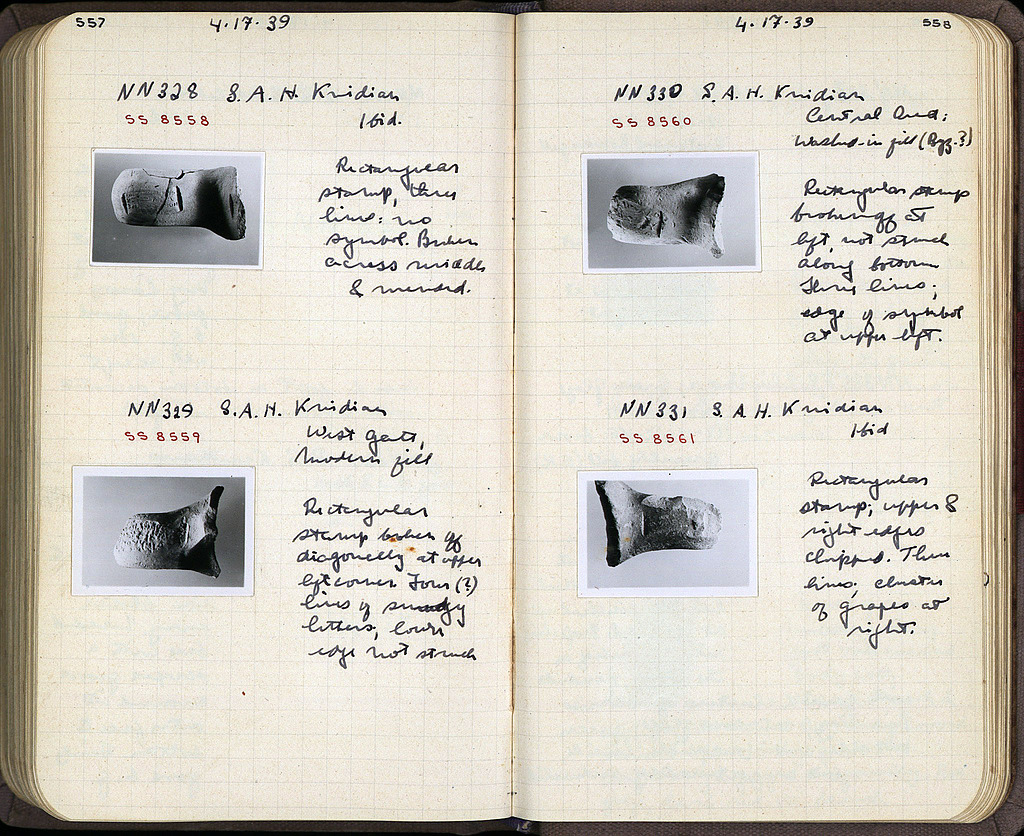 557
4.17.39
NN328 S.A.H. Knidian
SS 8558
Ibid.
Rectangular
stamp, three
lines: no
symbol. Broken
across middle
& mended.
NN329 S.A.H. Knidian
SS 8559
West Gate,
modern fill
Rectangular
stamp broken off
diagonally at upper
left corner Four (?)
lines of smudgy
letters, lower
edge not struck
4.17.39
558
NN330 S.A.H. Knidian
SS 8560
Central Area:
Washed-in fill (Byz.?)
Rectangular stamp
broken off at
left, not struck
along bottom
Three lines;
edge of symbol
at upper left.
NN331 S.A.H. Knidian
SS 8561
Ibid
Rectangular
stamp; upper &
right edges
chipped. Three
lines; cluster
of grapes at
right.